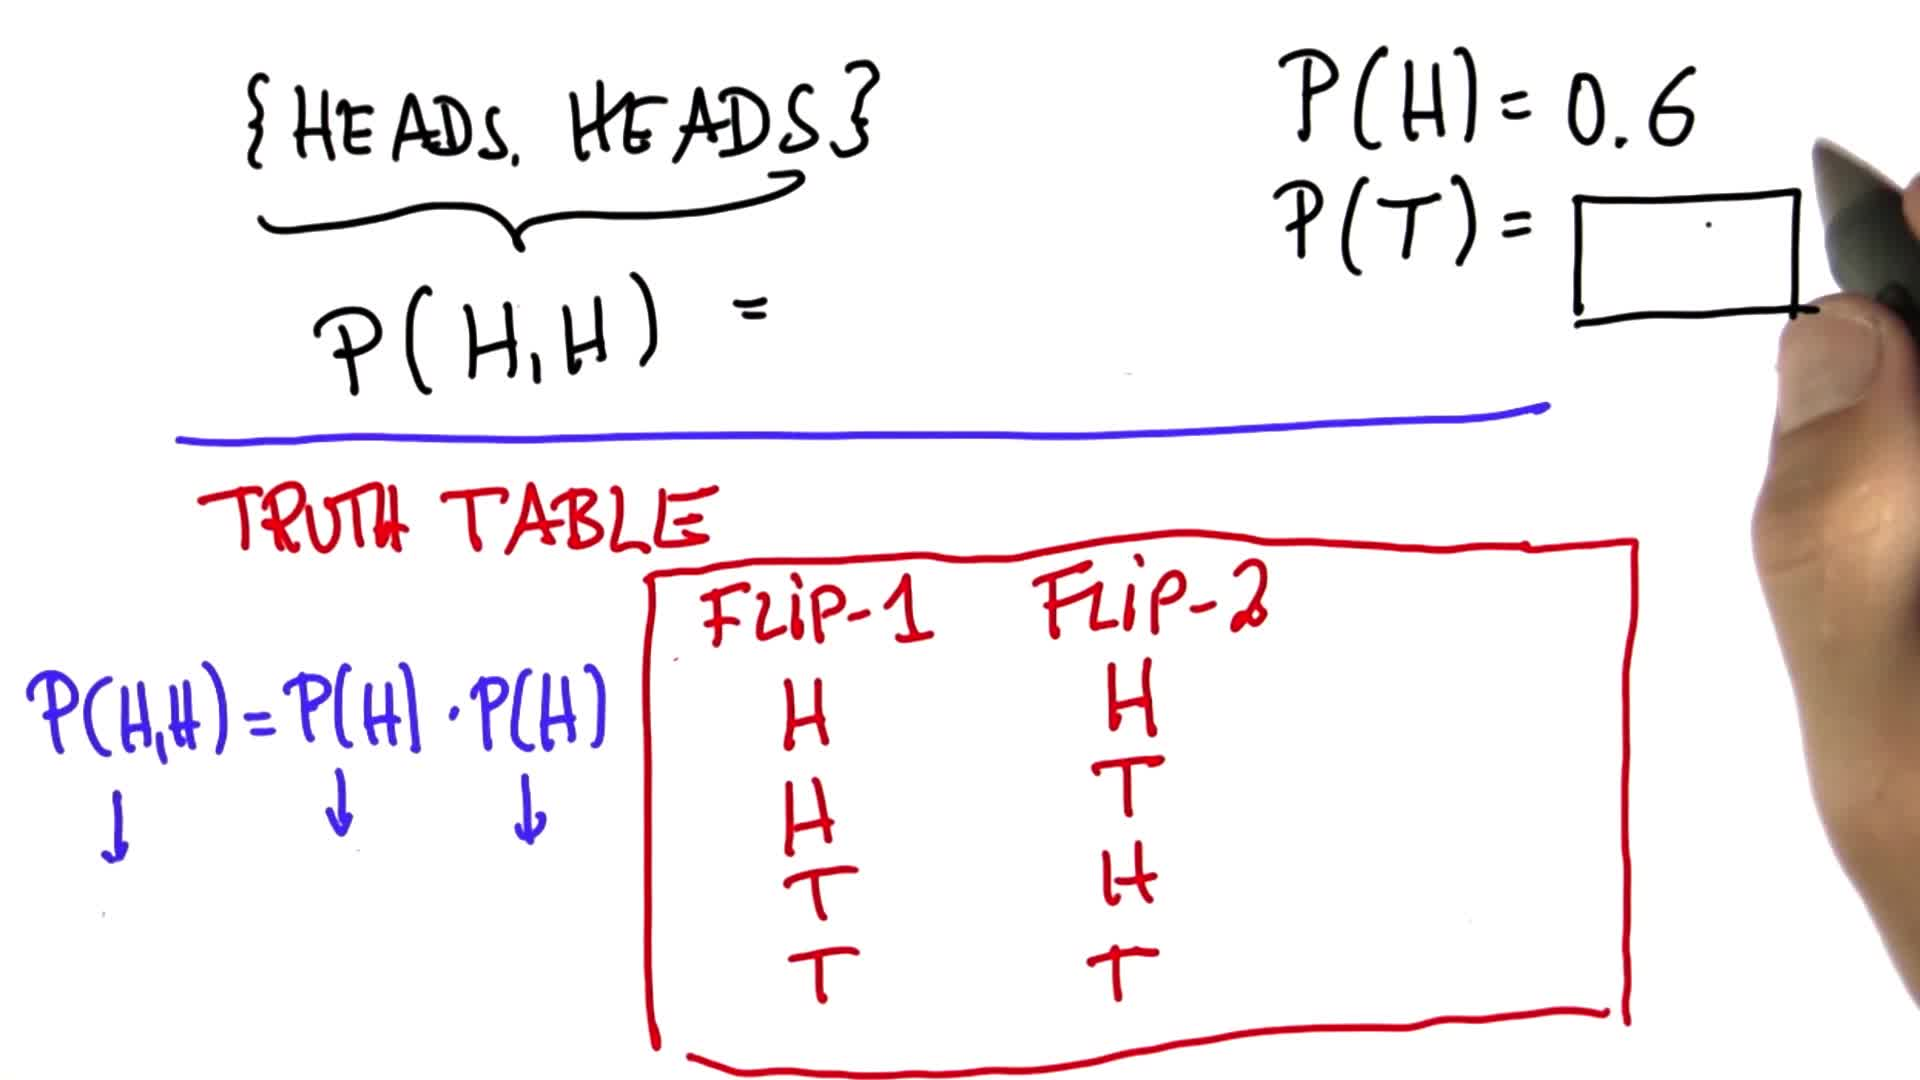 {HEADS, HEADS}
P(H,H) =
P(H) = 0.6
P(T) =
TRUTH TABLE
P(H,H) = P(H) · P(H)
FLiP-1 FLiP-2
H H
H T
T H
T T